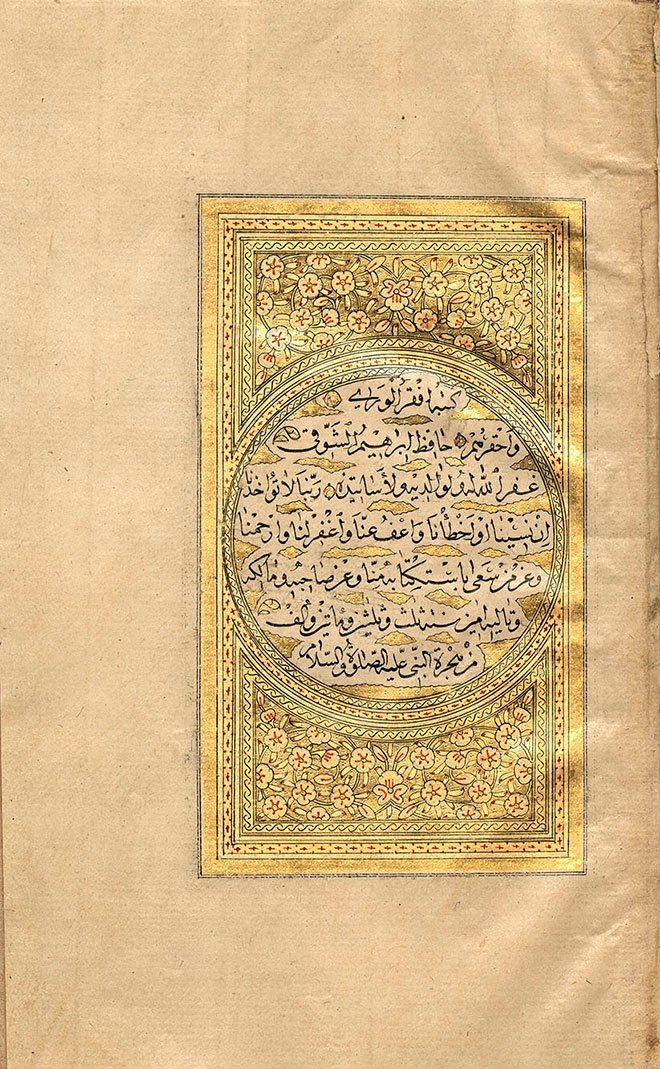 كتبه افقر الورى
واحقرهم حافظ ابراهيم الشوقى
غفر الله له ولوالديه ولاساتيذه ربنا لا تؤاخذنا
ان نسينا او اخطأنا واعف عنا واغفر لنا وارحمنا
وعن من سعى باستكتابه منا وعن صاحبه ومالكه
وتاليه امين سنه ثلث وثلثين ومأتين والف
من هجرة النبى عليه الصلوة والسلام